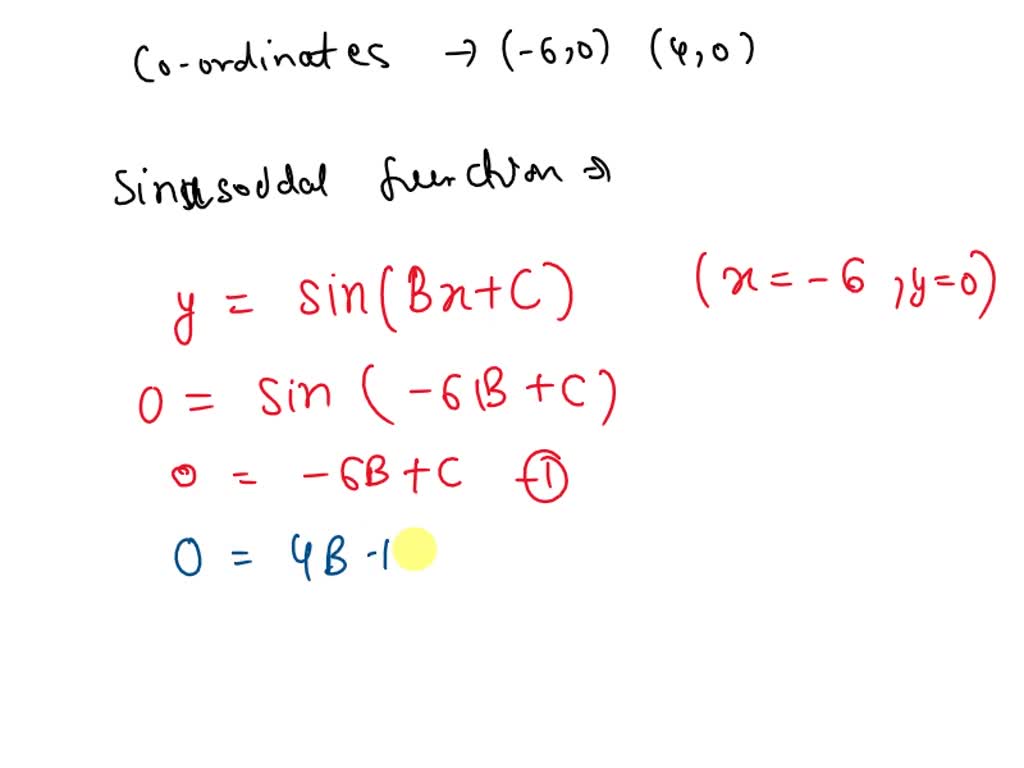 Co-ordinates → (-6,0) (4,0)
Sinusoddal function ⇒
y = sin(Bx+C) (x = -6, y=0)
0 = sin (-6B+C)
0 = -6B+C -①
0 = 4B -1